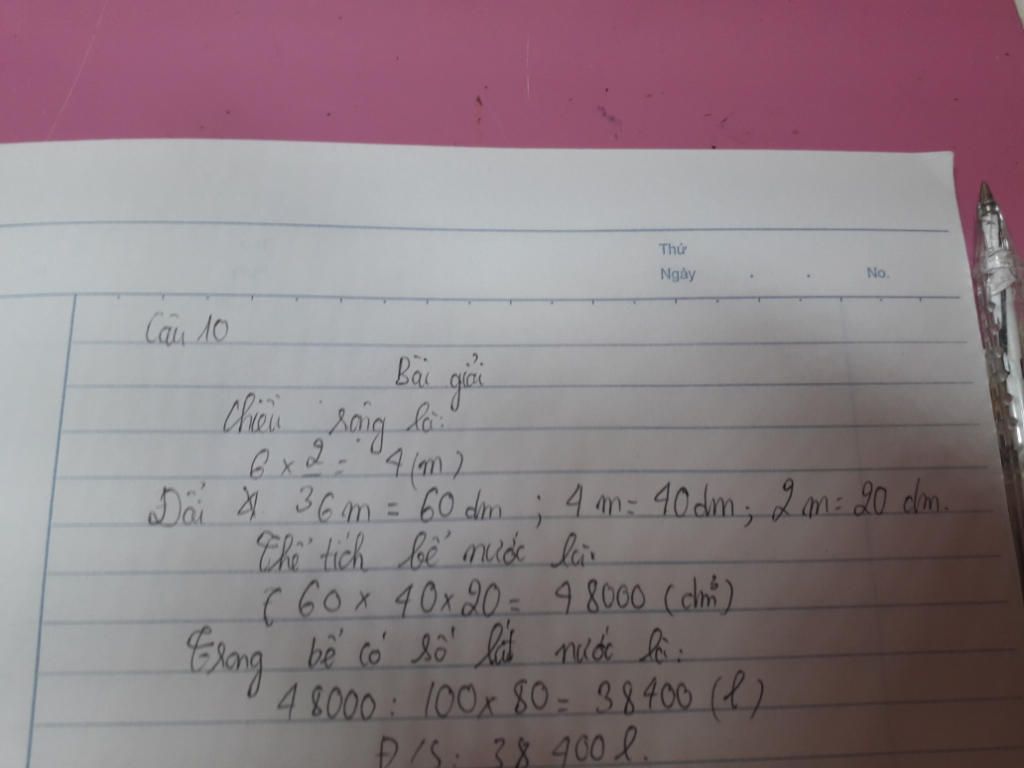 Thứ
Ngày . . No.
Câu 10
Bài giải
Chiều rộng là:
6 × 2/3 = 4 (m)
Đổi 6m = 60 dm ; 4 m = 40 dm ; 2 m = 20 dm.
Thể tích bể nước là:
60 × 40 × 20 = 48000 (dm³)
Trong bể có số lít nước là:
48000 : 100 × 80 = 38400 (l)
Đ/S: 38 400 l.